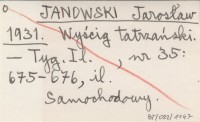 JANOWSKI Jarosław
1931. Wyścig tatrzański.
— Tyg. Il., nr 35:
675-676, il.
Samochodowy.